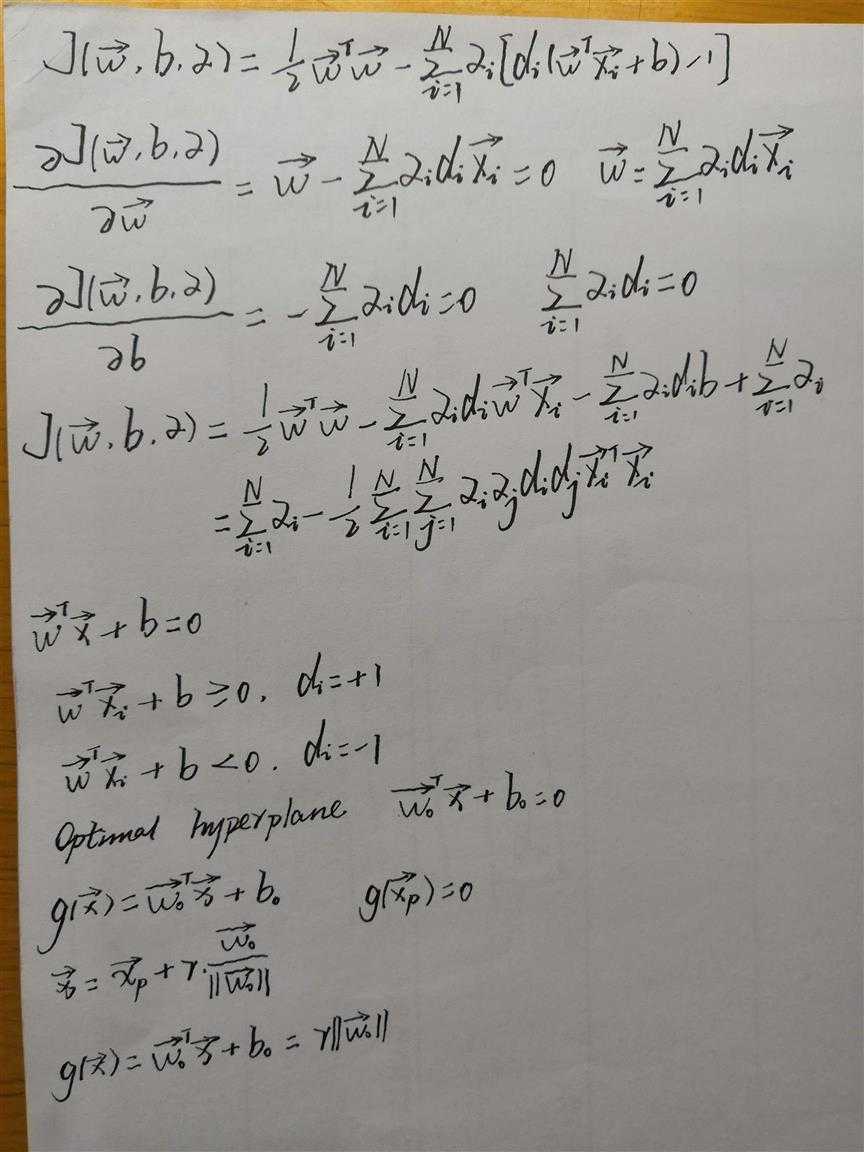 J(\vec{w}, b, α) = \frac{1}{2} \vec{w}^T \vec{w} - \sum_{i=1}^{N} α_i [d_i (\vec{w}^T \vec{x}_i + b) - 1]
\frac{∂J(\vec{w}, b, α)}{∂\vec{w}} = \vec{w} - \sum_{i=1}^{N} α_i d_i \vec{x}_i = 0   \vec{w} = \sum_{i=1}^{N} α_i d_i \vec{x}_i
\frac{∂J(\vec{w}, b, α)}{∂b} = - \sum_{i=1}^{N} α_i d_i = 0   \sum_{i=1}^{N} α_i d_i = 0
J(\vec{w}, b, α) = \frac{1}{2} \vec{w}^T \vec{w} - \sum_{i=1}^{N} α_i d_i \vec{w}^T \vec{x}_i - \sum_{i=1}^{N} α_i d_i b + \sum_{i=1}^{N} α_i
= \sum_{i=1}^{N} α_i - \frac{1}{2} \sum_{i=1}^{N} \sum_{j=1}^{N} α_i α_j d_i d_j \vec{x}_i^T \vec{x}_i
\vec{w}^T \vec{x} + b = 0
\vec{w}^T \vec{x}_i + b ≥ 0, d_i = +1
\vec{w}^T \vec{x}_i + b < 0, d_i = -1
Optimal hyperplane   \vec{w}_0^T \vec{x} + b_0 = 0
g(\vec{x}) = \vec{w}_0^T \vec{x} + b_0   g(\vec{x}_p) = 0
\vec{x} = \vec{x}_p + r · \frac{\vec{w}_0}{||\vec{w}_0||}
g(\vec{x}) = \vec{w}_0^T \vec{x} + b_0 = r||\vec{w}_0||